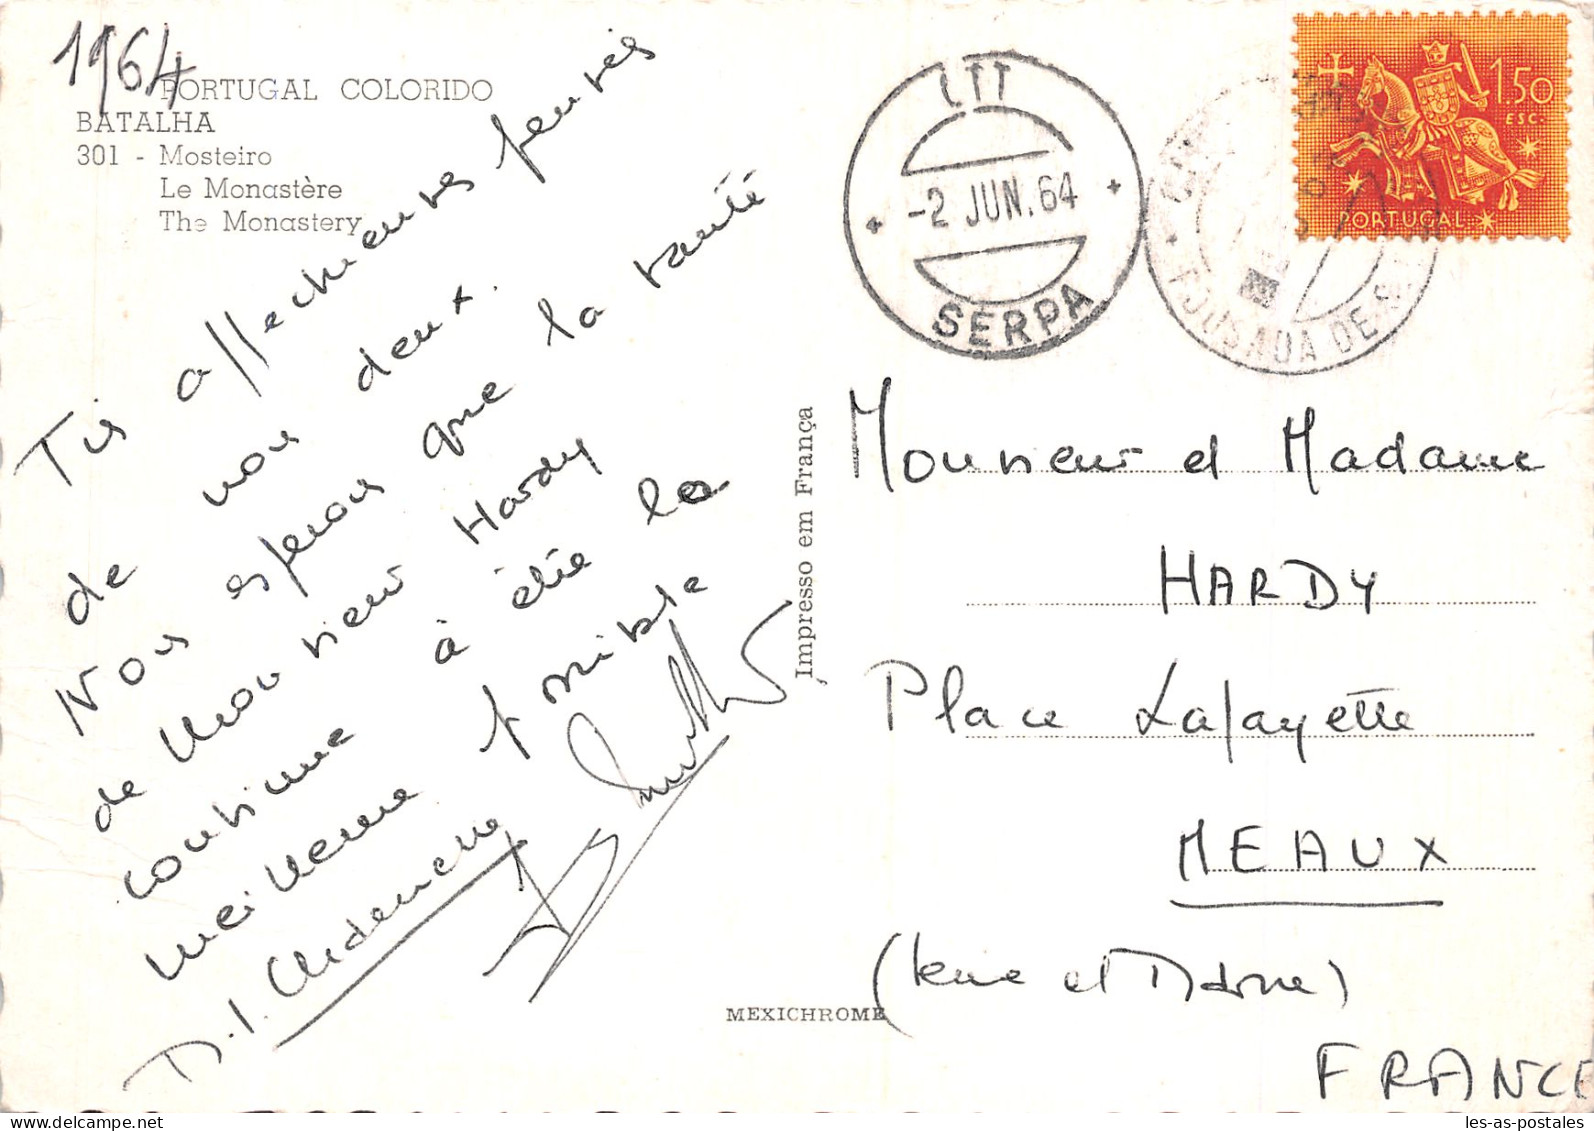 1964
PORTUGAL COLORIDO
BATALHA
301 - Mosteiro
Le Monastère
The Monastery
Très affectueuses pensées
de nous deux.
Nous espérons que la santé
de Monsieur Hardy
continue à être la
meilleure possible
Impresso em França
MEXICHROME
CTT
-2 JUN. 64
SERPA
1$50
ESC.
PORTUGAL
Monsieur et Madame
HARDY
Place Lafayette
MEAUX
(Seine et Marne)
FRANCE
les-as-postales.com